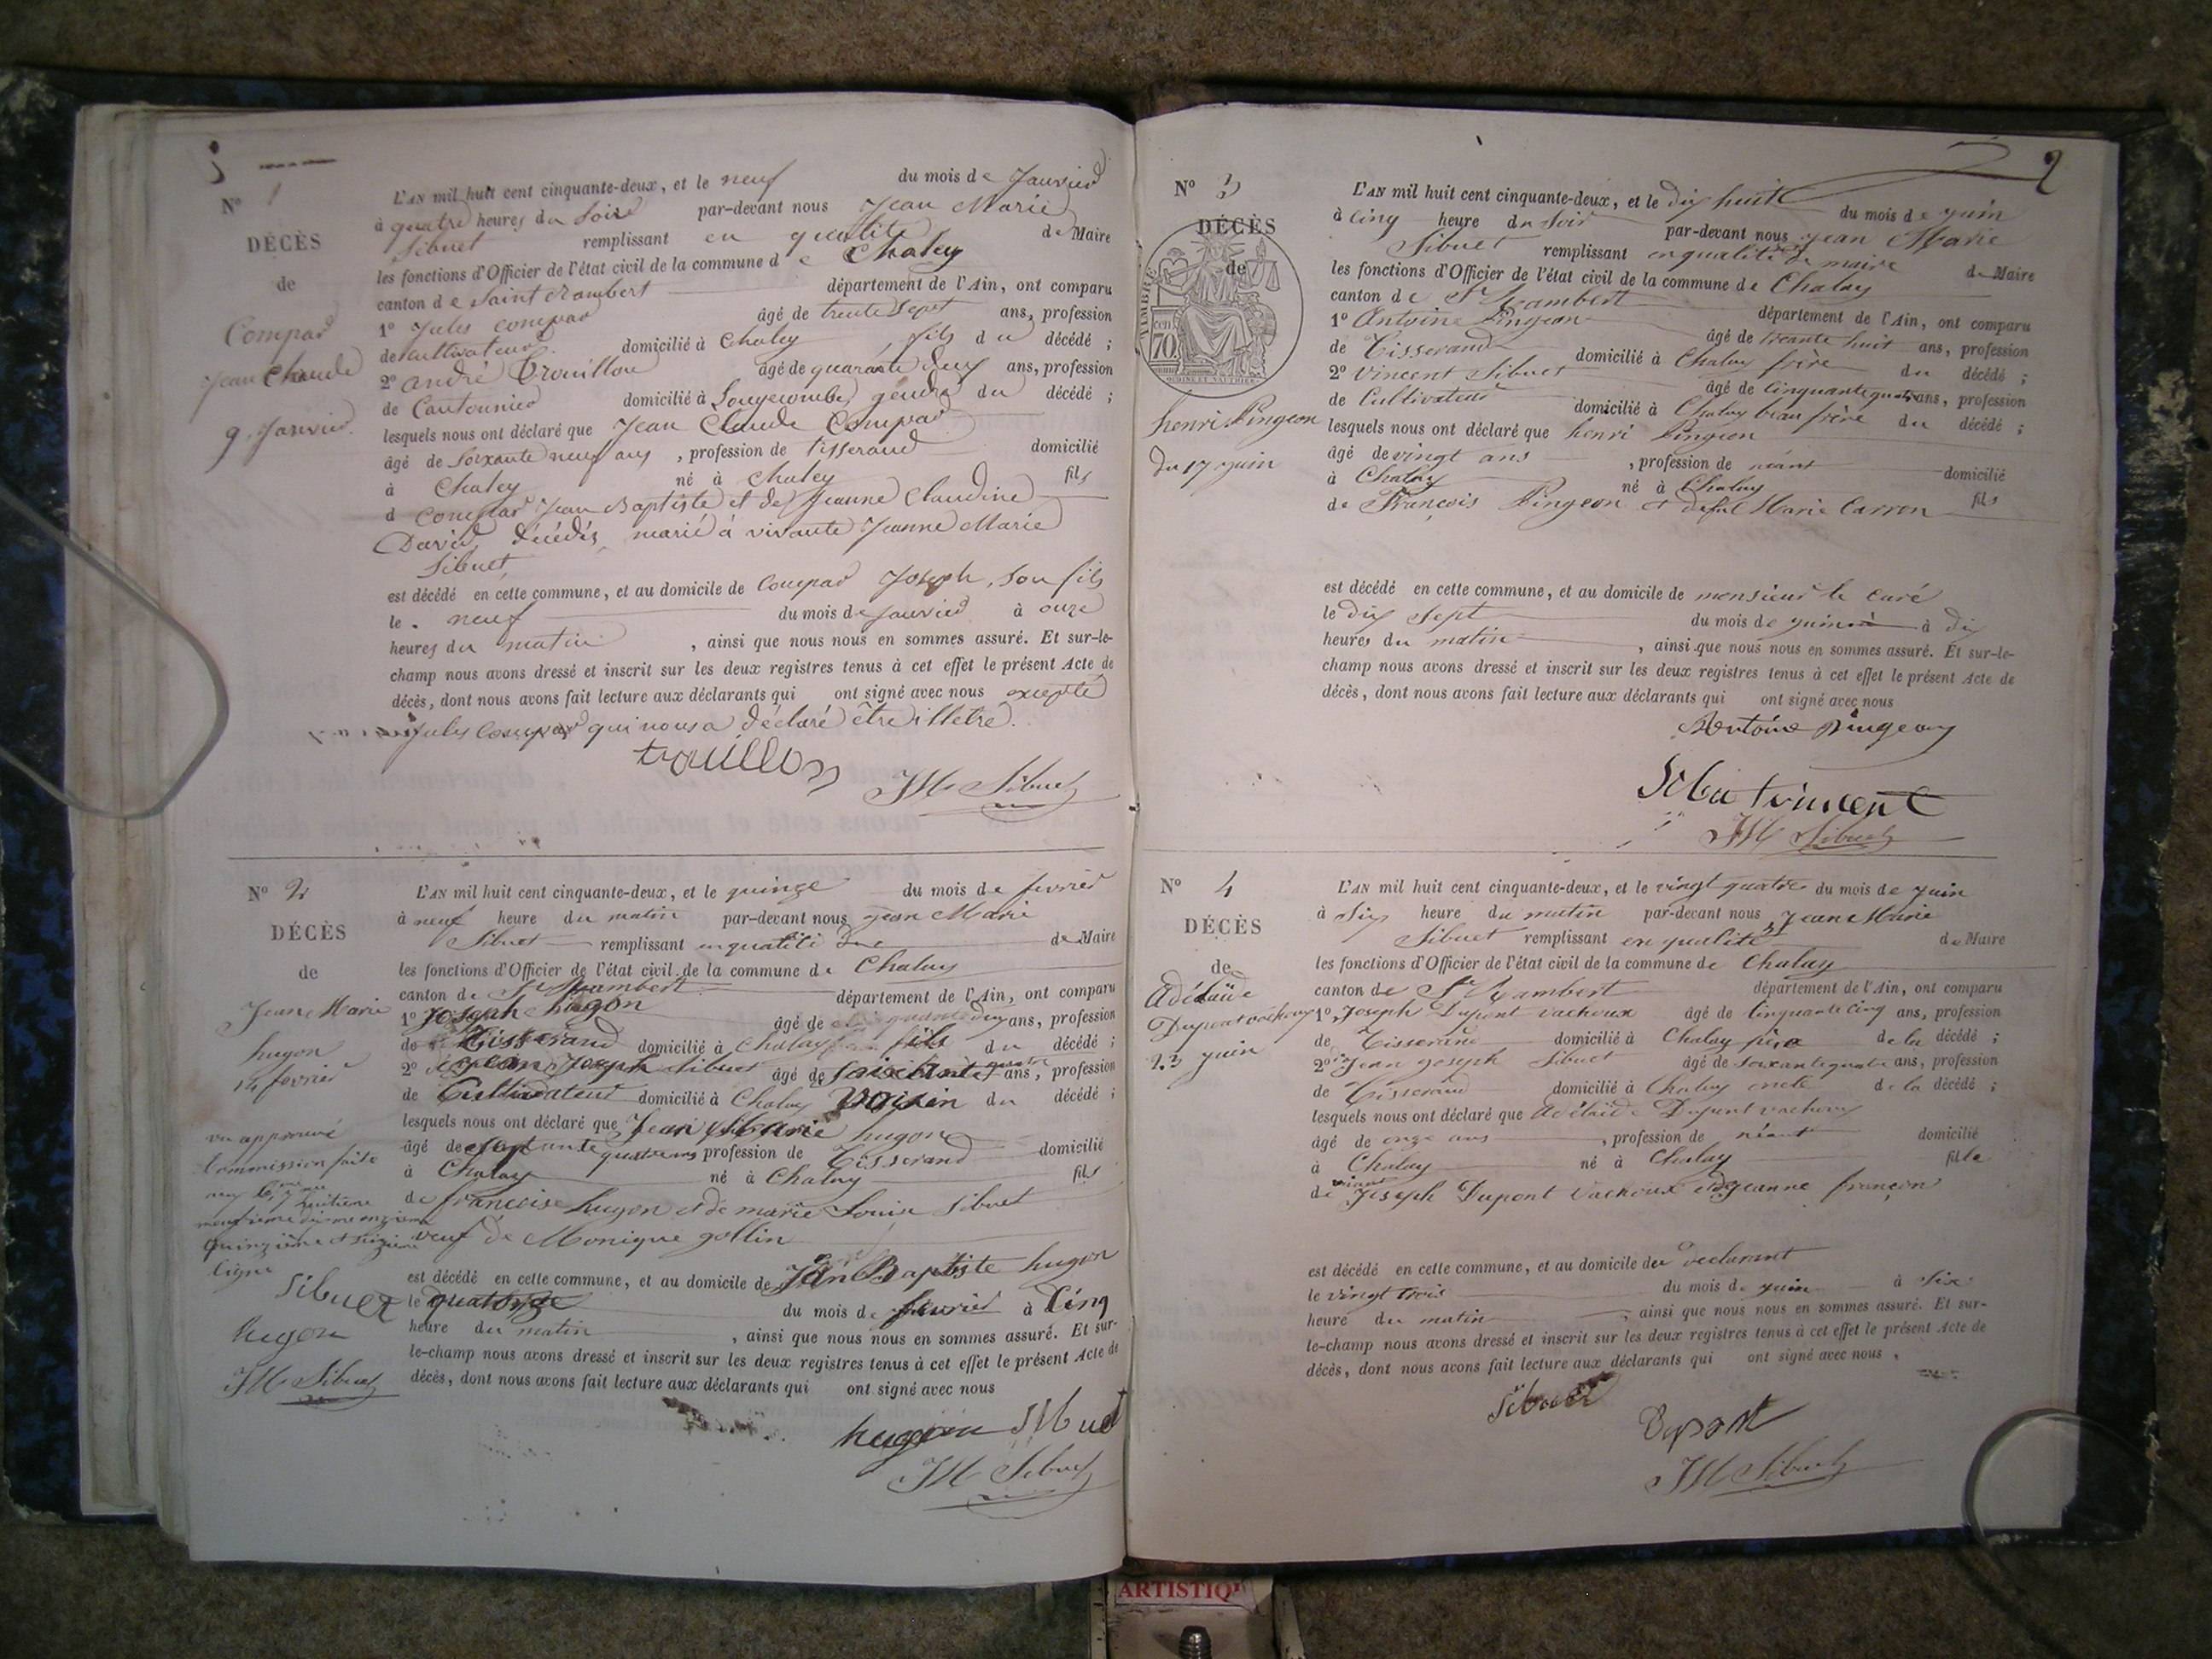 N° 1
DÉCÈS
de
Compas
Jean Claude
9. Janvier.
L'AN mil huit cent cinquante-deux, et le neuf du mois de Janvier
à quatre heures du soir par-devant nous Jean Marie
Sibuet remplissant en qualité de Maire
les fonctions d'Officier de l'état civil de la commune de Chaley
canton de Saint Rambert département de l'Ain, ont comparu
1° Jules Compas âgé de trente sept ans, profession
de cultivateur domicilié à Chaley, fils du décédé ;
2° andré Trouillon âgé de quarante deux ans, profession
de Cantonnier domicilié à gendre du décédé ;
lesquels nous ont déclaré que Jean Claude Compas
âgé de soixante neuf ans, profession de tisserand domicilié
à Chaley né à Chaley fils
d Compas Jean Baptiste et de Jeanne Claudine
David, décédés, marié à vivante Jeanne Marie
Sibuet
est décédé en cette commune, et au domicile de Compas Joseph, son fils
le neuf du mois de Janvier à onze
heures du matin, ainsi que nous nous en sommes assuré. Et sur-le-
champ nous avons dressé et inscrit sur les deux registres tenus à cet effet le présent Acte de
décès, dont nous avons fait lecture aux déclarants qui ont signé avec nous excepté
Jules Compas qui nous a déclaré être illetré.
trouillon
JM Sibuet
N° 2
DÉCÈS
de
Jean Marie
hugon
14 fevrier
vu approuvé
huitième
quinzième et seizième
ligne
Sibuet
hugon
JM Sibuet
L'AN mil huit cent cinquante-deux, et le quinze du mois de fevrier
à neuf heure du matin par-devant nous Jean Marie
Sibuet remplissant en qualité de Maire
les fonctions d'Officier de l'état civil de la commune de Chaley
canton de St Rambert département de l'Ain, ont comparu
1° Joseph hugon âgé de ans, profession
de Tisserand domicilié à Chaley fils du décédé ;
2° Jean Joseph Sibuet âgé de soixante quatre ans, profession
de Cultivateur domicilié à Chaley voisin du décédé ;
lesquels nous ont déclaré que Jean Marie hugon
âgé de septante quatre ans profession de Tisserand domicilié
à Chaley né à Chaley fils
de francoise hugon et de marie Louise Sibuet
veuf de Monique gollin
est décédé en cette commune, et au domicile de Jean Baptiste hugon
le quatorze du mois de fevrier à Cinq
heure du matin, ainsi que nous nous en sommes assuré. Et sur-
le-champ nous avons dressé et inscrit sur les deux registres tenus à cet effet le présent Acte de
décès, dont nous avons fait lecture aux déclarants qui ont signé avec nous
hugon Sibuet
JM Sibuet
2
N° 3
DÉCÈS
de
TIMBRE
70
henri Pingeon
du 17 juin
L'AN mil huit cent cinquante-deux, et le dix huit du mois de juin
à cinq heure du soir par-devant nous Jean Marie
Sibuet remplissant en qualité de maire de Maire
les fonctions d'Officier de l'état civil de la commune de Chaley
canton de St Rambert département de l'Ain, ont comparu
1° Antoine Pingeon âgé de trente huit ans, profession
de Tisserand domicilié à Chaley frère du décédé ;
2° Vincent Sibuet âgé de cinquante quatre ans, profession
de Cultivateur domicilié à Chaley beau frère du décédé ;
lesquels nous ont déclaré que henri Pingeon
âgé de vingt ans, profession de néant domicilié
à Chaley né à Chaley fils
de François Pingeon et Marie Carron
est décédé en cette commune, et au domicile de monsieur le curé
le dix sept du mois de juin à dix
heures du matin, ainsi que nous nous en sommes assuré. Et sur-le-
champ nous avons dressé et inscrit sur les deux registres tenus à cet effet le présent Acte de
décès, dont nous avons fait lecture aux déclarants qui ont signé avec nous
Antoine Pingeon
Sibuet vincent
JM Sibuet
N° 4
DÉCÈS
de
Adélaïde
Dupont vachoux
23 juin
L'AN mil huit cent cinquante-deux, et le vingt quatre du mois de juin
à Six heure du matin par-devant nous Jean Marie
Sibuet remplissant en qualité de Maire
les fonctions d'Officier de l'état civil de la commune de Chaley
canton de St Rambert département de l'Ain, ont comparu
1° Joseph Dupont vachoux âgé de cinquante cinq ans, profession
de Tisserand domicilié à Chaley père de la décédé ;
2° Jean joseph Sibuet âgé de soixante quatre ans, profession
de Tisserand domicilié à Chaley oncle de la décédé ;
lesquels nous ont déclaré que Adélaïde Dupont vachoux
âgé de onze ans, profession de néant domicilié
à Chaley né à Chaley fille
de Joseph Dupont Vachoux et de jeanne françon
est décédé en cette commune, et au domicile du declarant
le vingt trois du mois de juin à six
heure du matin, ainsi que nous nous en sommes assuré. Et sur-
le-champ nous avons dressé et inscrit sur les deux registres tenus à cet effet le présent Acte de
décès, dont nous avons fait lecture aux déclarants qui ont signé avec nous,
Sibuet
Dupont
JM Sibuet
ARTISTIQ